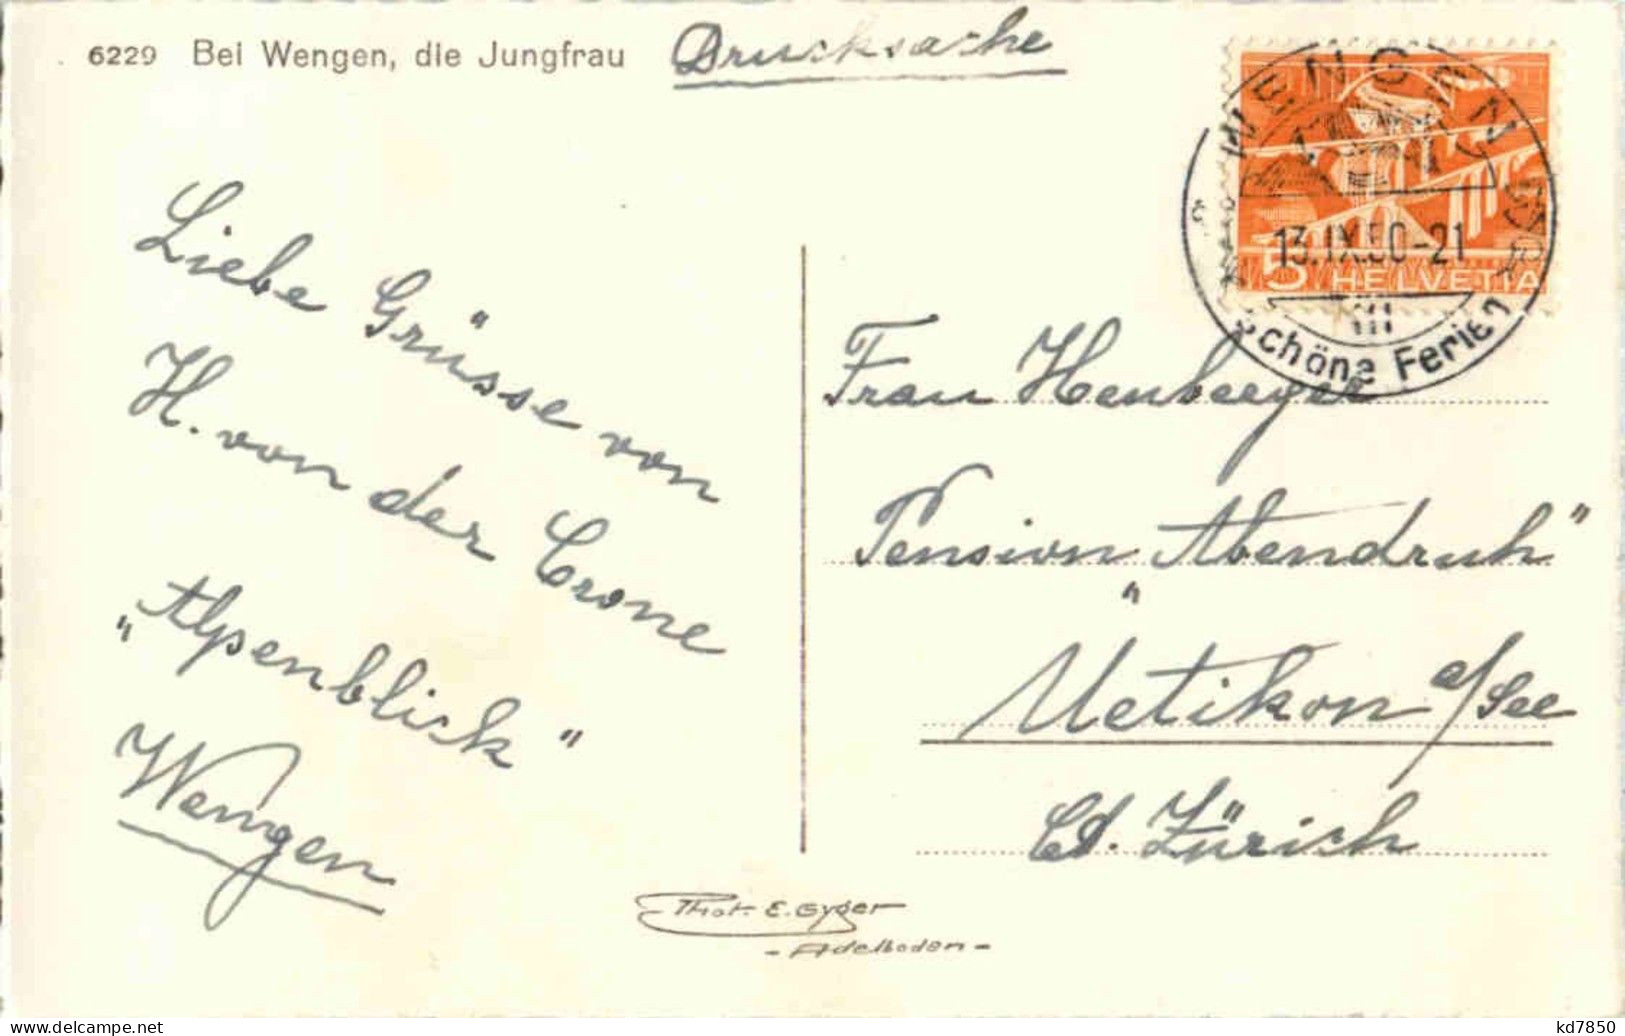 6229 Bei Wengen, die Jungfrau
Drucksache
WENGEN
13.IX.50-21
Schöne Ferien
5 HELVETIA
Liebe Grüsse von
H. von der Crone
"Alpenblick"
Wengen
Frau
Pension "Abendruh"
Uetikon a/See
Ct. Zürich
Phot. E. Gyger
- Adelboden -
kd7850